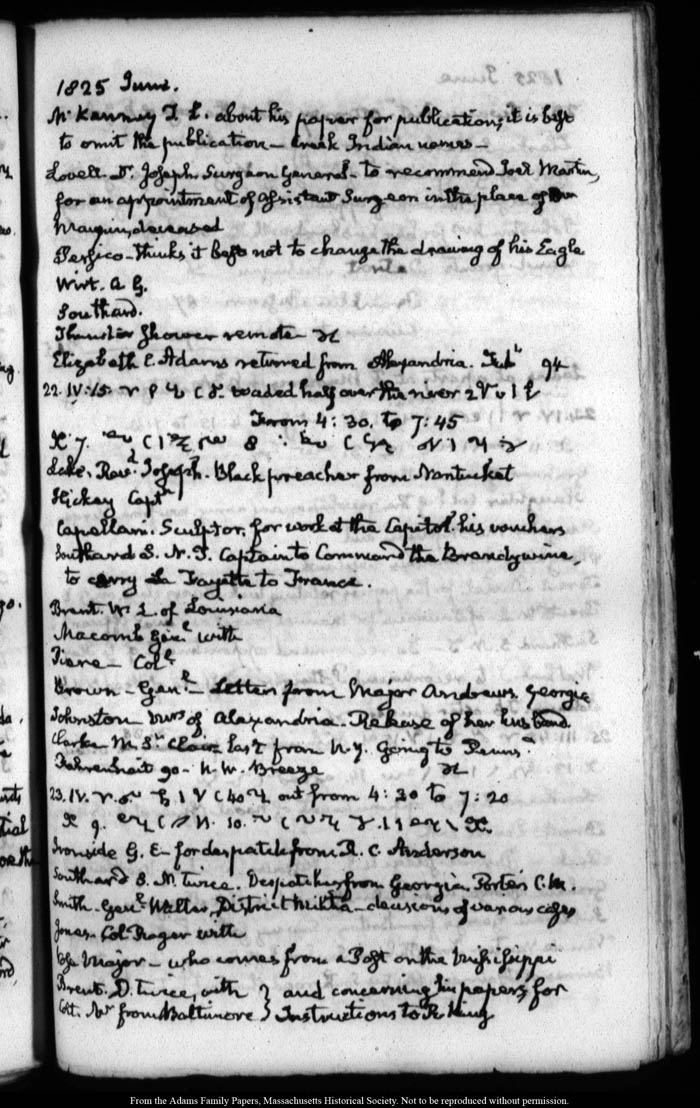 1825 June.
McKenney T. L. about his paper for publication, it is best
to omit the publication – Creek Indian names –
Lovell. Dr. Joseph Surgeon General – to recommend Joel Martin,
for an appointment of Assistant Surgeon in the place of
deceased
Persico – thinks it best not to change the drawing of his Eagle
Wirt. A G.
Southard.
Thunder Shower remote
Elizabeth C. Adams returned from Alexandria. 94
22. IV:15. waded half over the river
From 4:30. to 7:45
Revd. Joseph. Black preacher from Nantucket
Hickey Captn
Capellani. Sculptor, for work at the Capitol. his vouchers
Southard S. N. T. Captain to Command the Brandywine,
to carry La Fayette to France.
Brent. W. L. of Louisiana
Macomb Genl with
Colo
Brown – Genl – Letter from Major Andrews. Georgia
Johnston Mrs of Alexandria. Release of her husband
Clarke M. St Clair last from N.Y. Going to Penns
Fahrenheit 90 – N.W. Breeze
23. IV. out from 4:30 to 7:20
Ironside G. E – for despatch from R. C. Anderson
Southard S. N. twice. Despatches from Georgia. Porter's C. M.
Smith. Genl Walter, District Militia – decisions of various cases
Jones. Col. Roger with
Major – who comes from a Post on the Mississippi
Brent. D. twice, with } and concerning his papers for
Mr from Baltimore } Instructions to R. King
From the Adams Family Papers, Massachusetts Historical Society. Not to be reproduced without permission.